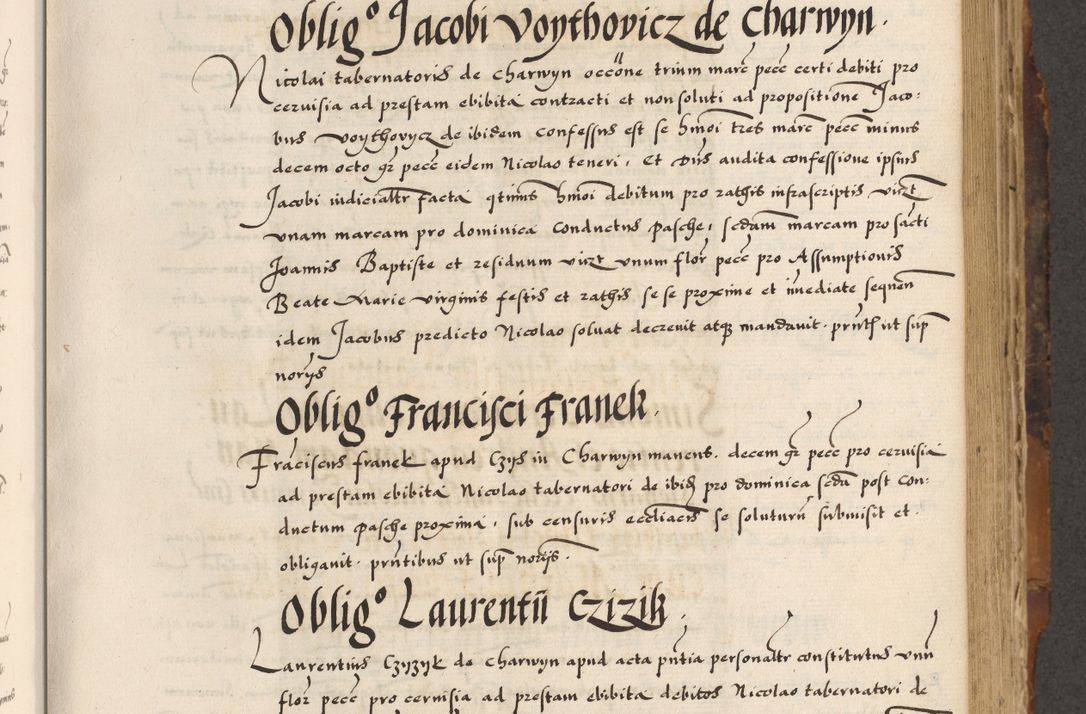 Oblig⁰ Jacobi Voythovicz de Charwyn.
Nicolai tabernatoris de Charwyn occōne trium marc̄ pecc̄ certi debiti pro
cervisia ad prestam ebibita contracti et non soluti ad propositionē Jaco:
bus Voythovycz de ibidem confessus est se hm̄oi tres marc̄ pecc̄ minus
decem octo gr̄ pecc̄ eidem Nicolao teneri, Et Dn̄s audita confessione ipsius
Jacobi iudicialr̄ facta qtinus hm̄oi debitum pro rathis infrascriptis vizt
unam marcam pro dominica conductus pasche, scd̄am marcam pro sāncti
Joannis Baptiste et residuum vizt unum flor̄ pecc̄ pro Assumptionis
Beate Marie virginis festis et rathis se se proxime et īmediate sequen̄
idem Jacobus predicto Nicolao solvat decrevit atqȝ mandavit. prn̄tḣ ut sup̄
noriјs
Oblig⁰ Francisci Franek.
Frāciscus franek apud Czys in Charwyn manens. decem gr̄ pecc̄ pro cervisia
ad prestam ebibita Nicolao tabernatori de ibid̄ pro dominica scd̄a post con:
ductum pasche proxima, sub censuris eccl̄iacis se soluturū submisit et
obligavit. prn̄tibus ut sup̄ noriјs.
Oblig⁰ Laurentii Czizik.
Laurentius Czyzyk de Charwyn apud acta pn̄tia personalr̄ constitutus unū
flor̄ pecc̄ pro cervisia ad prestam ebibita debitos Nicolao tabernatori de